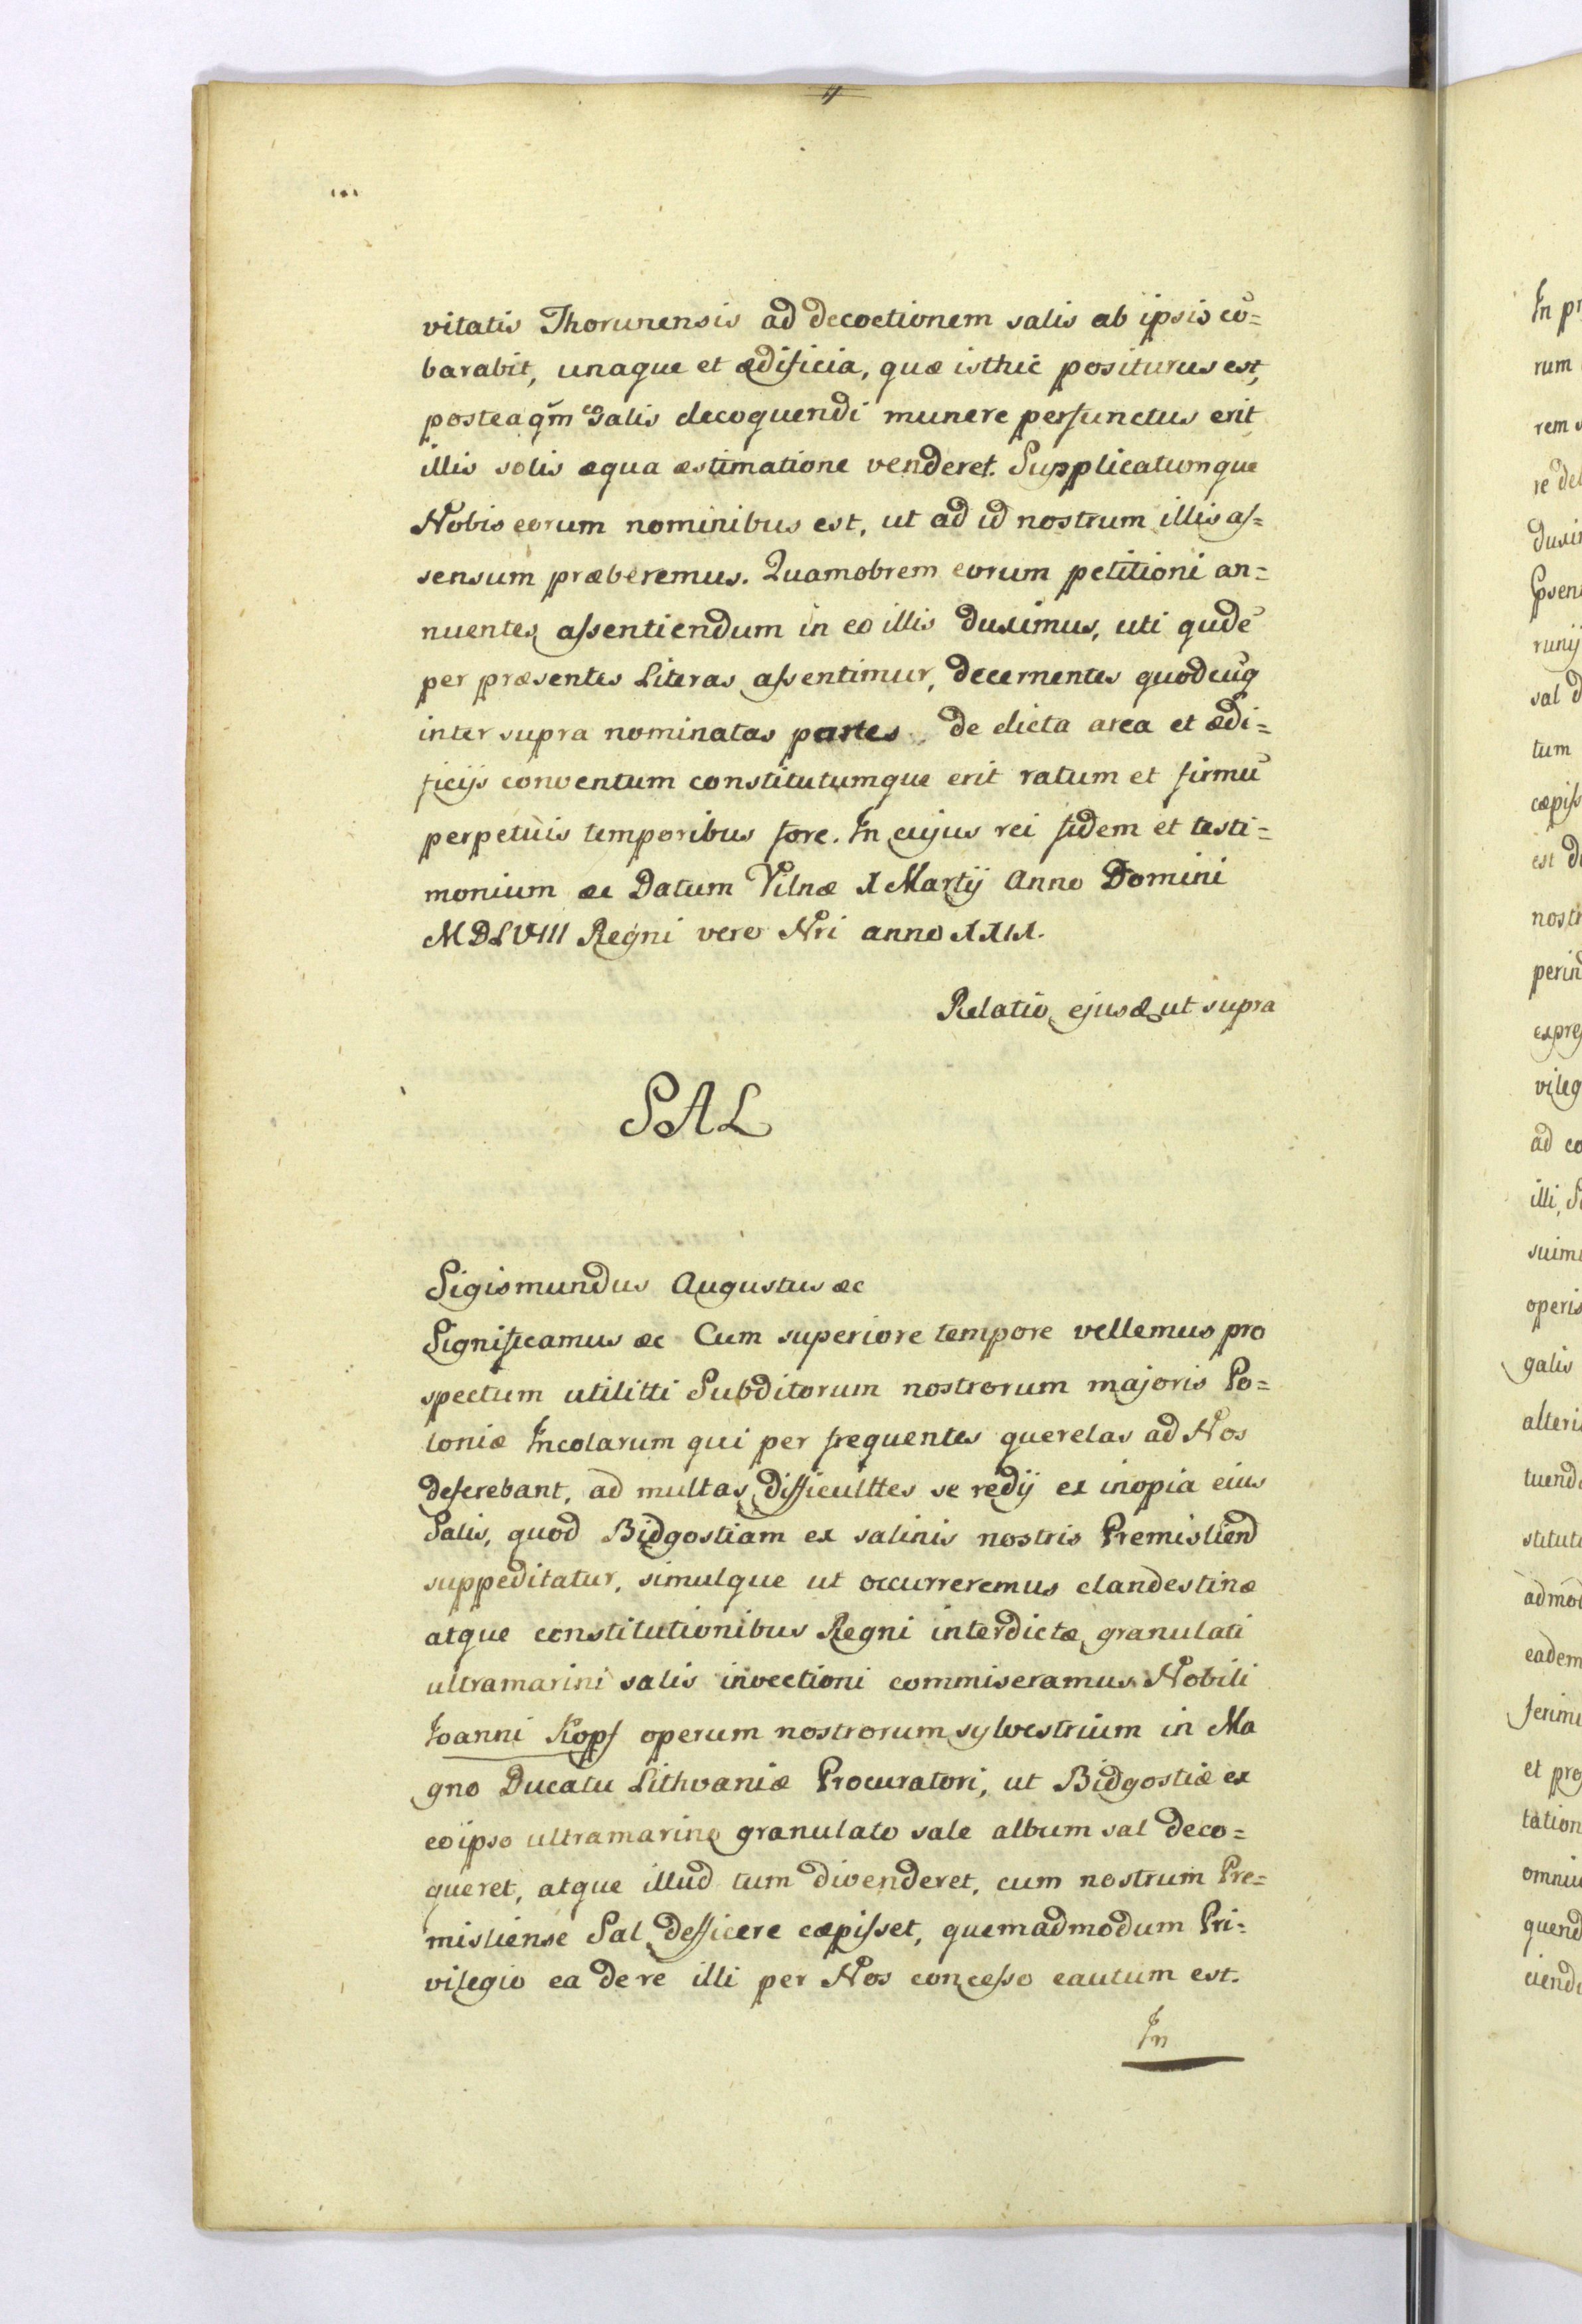 vitatis Thorunensis ad decoctionem salis ab ipsis cō=
barabit, unaque et ædificia, quæ isthic positurus est,
posteaqm̄ salis decoquendi munere perfunctus erit
illis solis æqua æstimatione venderet. Supplicatumque
Nobis eorum nominibus est, ut ad id nostrum illis aſ=
sensum præberemus. Quamobrem eorum petitioni an=
nuentes aſsentiendum in eo illis duximus, uti qudē
per præsentes Literas aſsentimur, decernentes quodcūq
inter supra nominatas partes de dicta area et ædi=
ficijs conventum constitutumque erit ratum et firmū
perpetuis temporibus fore. In cujus rei fidem et testi=
monium æc Datum Vilnæ X Martij Anno Domini
MDLVIII Regni vero Nri anno XXIX.
Relatio ejusd ut supra
SAL
Sigismundus Augustus æc
Significamus æc Cum superiore tempore vellemus pro
spectum utilitti Subditorum nostrorum majoris Po=
loniæ Incolarum qui per frequentes querelas ad Nos
deferebant, ad multas difficulttes se redij ex inopia eius
Salis, quod Bidgostiam ex salinis nostris Premisliend
suppeditatur, simulque ut occurreremus clandestinæ
atque constitutionibus Regni interdictæ granulati
ultramarini salis invectioni commiseramus Nobili
Joanni Kopf operum nostrorum sylvestrium in Ma
gno Ducatu Lithvaniæ Procuratori, ut Bidgostiæ ex
eoipso ultramarino granulato sale album sal deco=
queret, atque illud tum divenderet, cum nostrum Pre=
misliense Sal defficere cæpiſset, quemadmodum Pri=
vilegio ea de re illi per Nos conceſso cautum est.
In